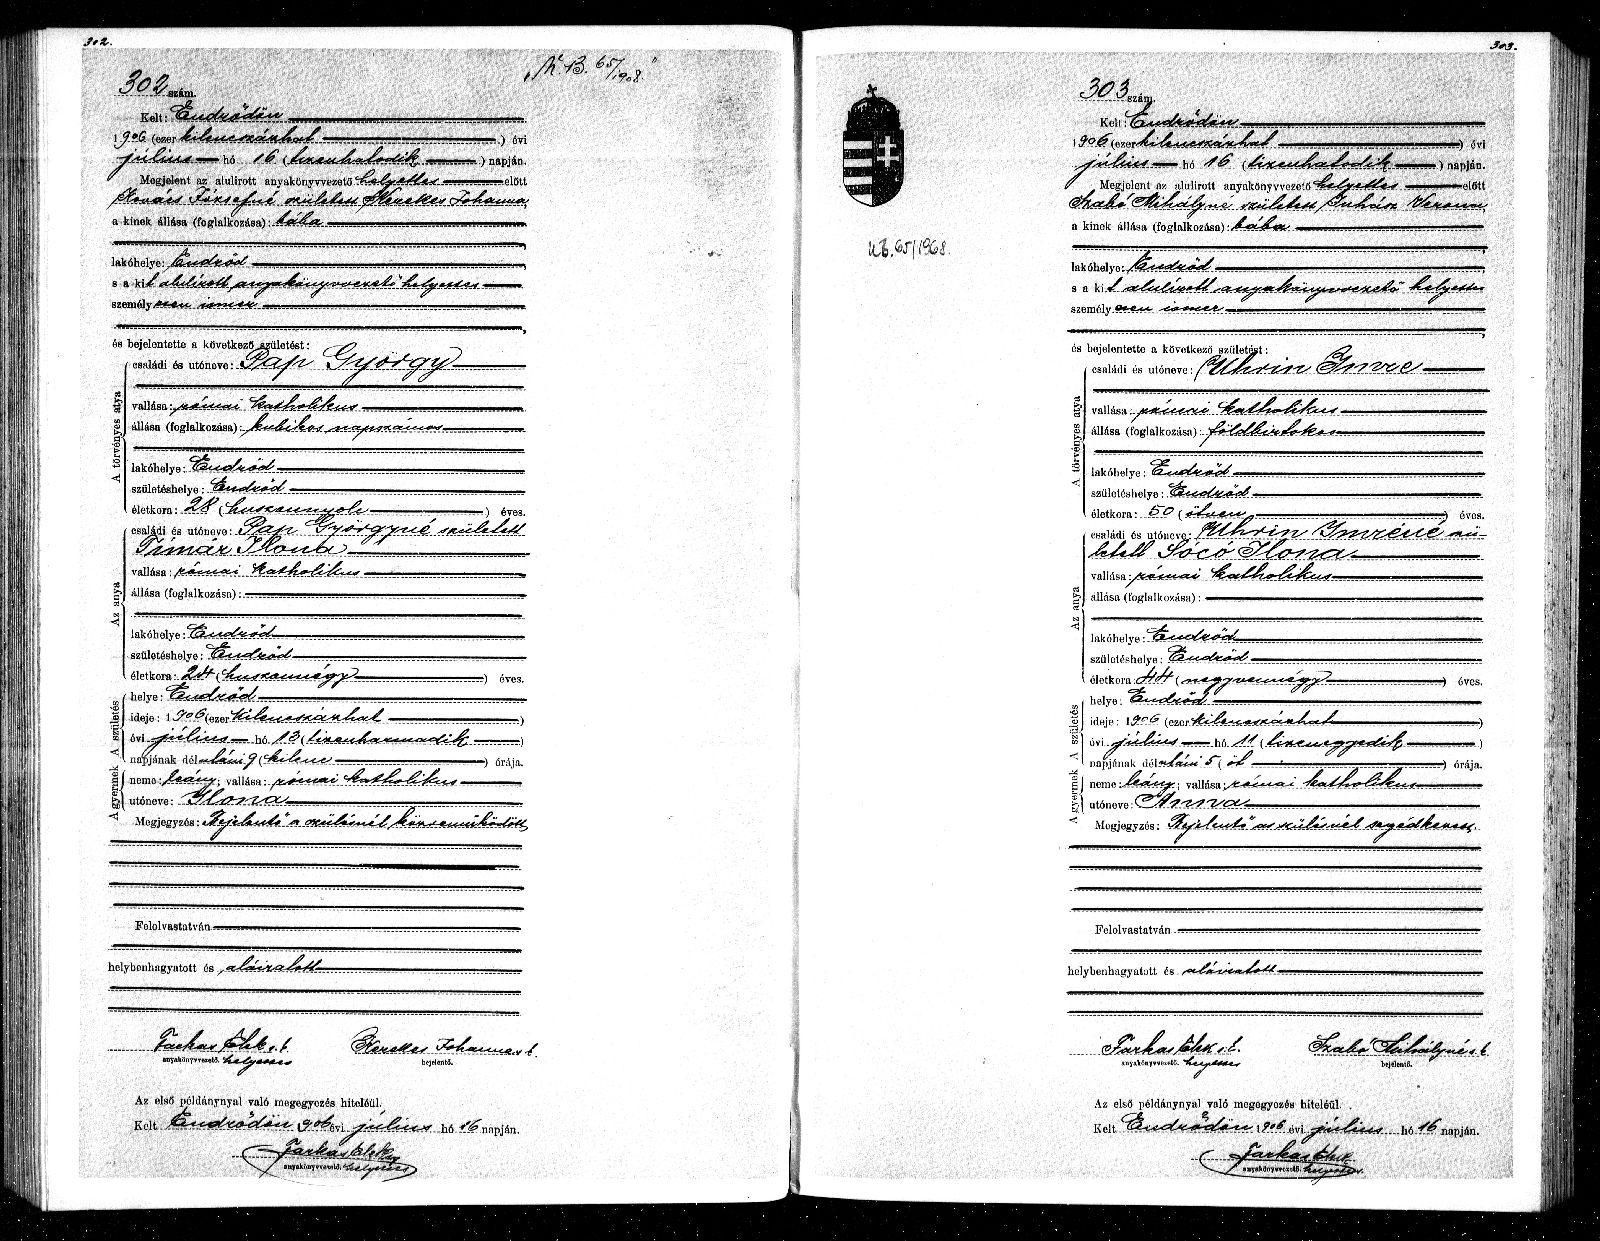 302.
"U.B. 65/1908."
302 szám.
Kelt: Endrődön
1906 (ezerkilencszázhat) évi
július hó 16 (tizenhatodik) napján.
Megjelent az alulirott anyakönyvvezető helyettes előtt
Kovács Józsefné született Kerekes Johanna,
a kinek állása (foglalkozása): bába
lakóhelye: Endrőd,
s a kit alulirott anyakönyvvezető helyettes
személyesen ismer,
és bejelentette a következő születést:
A törvényes atya
családi és utóneve: Pap György
vallása: római katholikus
állása (foglalkozása): kubikos napszámos
lakóhelye: Endrőd
születéshelye: Endrőd
életkora: 28 (huszonnyolc) éves.
Az anya
családi és utóneve: Pap Györgyné született
Tímár Ilona
vallása: római katholikus
állása (foglalkozása):
lakóhelye: Endrőd
születéshelye: Endrőd
életkora: 24 (huszonnégy) éves.
A gyermek A születés
helye: Endrőd
ideje: 1906 (ezerkilencszázhat)
évi július hó 13 (tizenharmadik)
napjának délutáni 9 (kilenc) órája.
neme: leány; vallása: római katholikus
utóneve: Ilona
Megjegyzés: Bejelentő a szülésnél közreműködött
Felolvastatván
helybenhagyatott és aláiratott
Farkas Elek s.k. Kerekes Johanna s.k.
anyakönyvvezető. helyettes bejelentő.
Az első példánynyal való megegyezés hiteléül.
Kelt Endrődön 906 évi július hó 16 napján.
Farkas Elek
anyakönyvvezető. helyettes
303.
303 szám.
Kelt: Endrődön
1906 (ezerkilencszázhat) évi
július hó 16 (tizenhatodik) napján.
Megjelent az alulirott anyakönyvvezető helyettes előtt
Szabó Mihályné született Juhász Verona,
a kinek állása (foglalkozása): bába
lakóhelye: Endrőd
s a kit alulirott anyakönyvvezető helyettes
személyesen ismer,
U.B. 65/1968.
és bejelentette a következő születést:
A törvényes atya
családi és utóneve: Uhrin Imre
vallása: római katholikus
állása (foglalkozása): földbirtokos
lakóhelye: Endrőd
születéshelye: Endrőd
életkora: 50 (ötven) éves.
Az anya
családi és utóneve: Uhrin Imréné szü-
letett Sócó Ilona
vallása: római katholikus
állása (foglalkozása):
lakóhelye: Endrőd
születéshelye: Endrőd
életkora 44 (negyvennégy) éves.
A gyermek A születés
helye: Endrőd
ideje: 1906 (ezerkilencszázhat)
évi július hó 11 (tizenegyedik)
napjának délutáni 5 (öt) órája.
neme: leány; vallása: római katholikus
utóneve: Anna
Megjegyzés: Bejelentő a szülésnél segédkezett.
Felolvastatván
helybenhagyatott és aláiratott
Farkas Elek s.k. Szabó Mihályné s.k.
anyakönyvvezető. helyettes bejelentő.
Az első példánynyal való megegyezés hiteléül.
Kelt Endrődön 1906 évi július hó 16 napján.
Farkas Elek
anyakönyvvezető. helyettes.